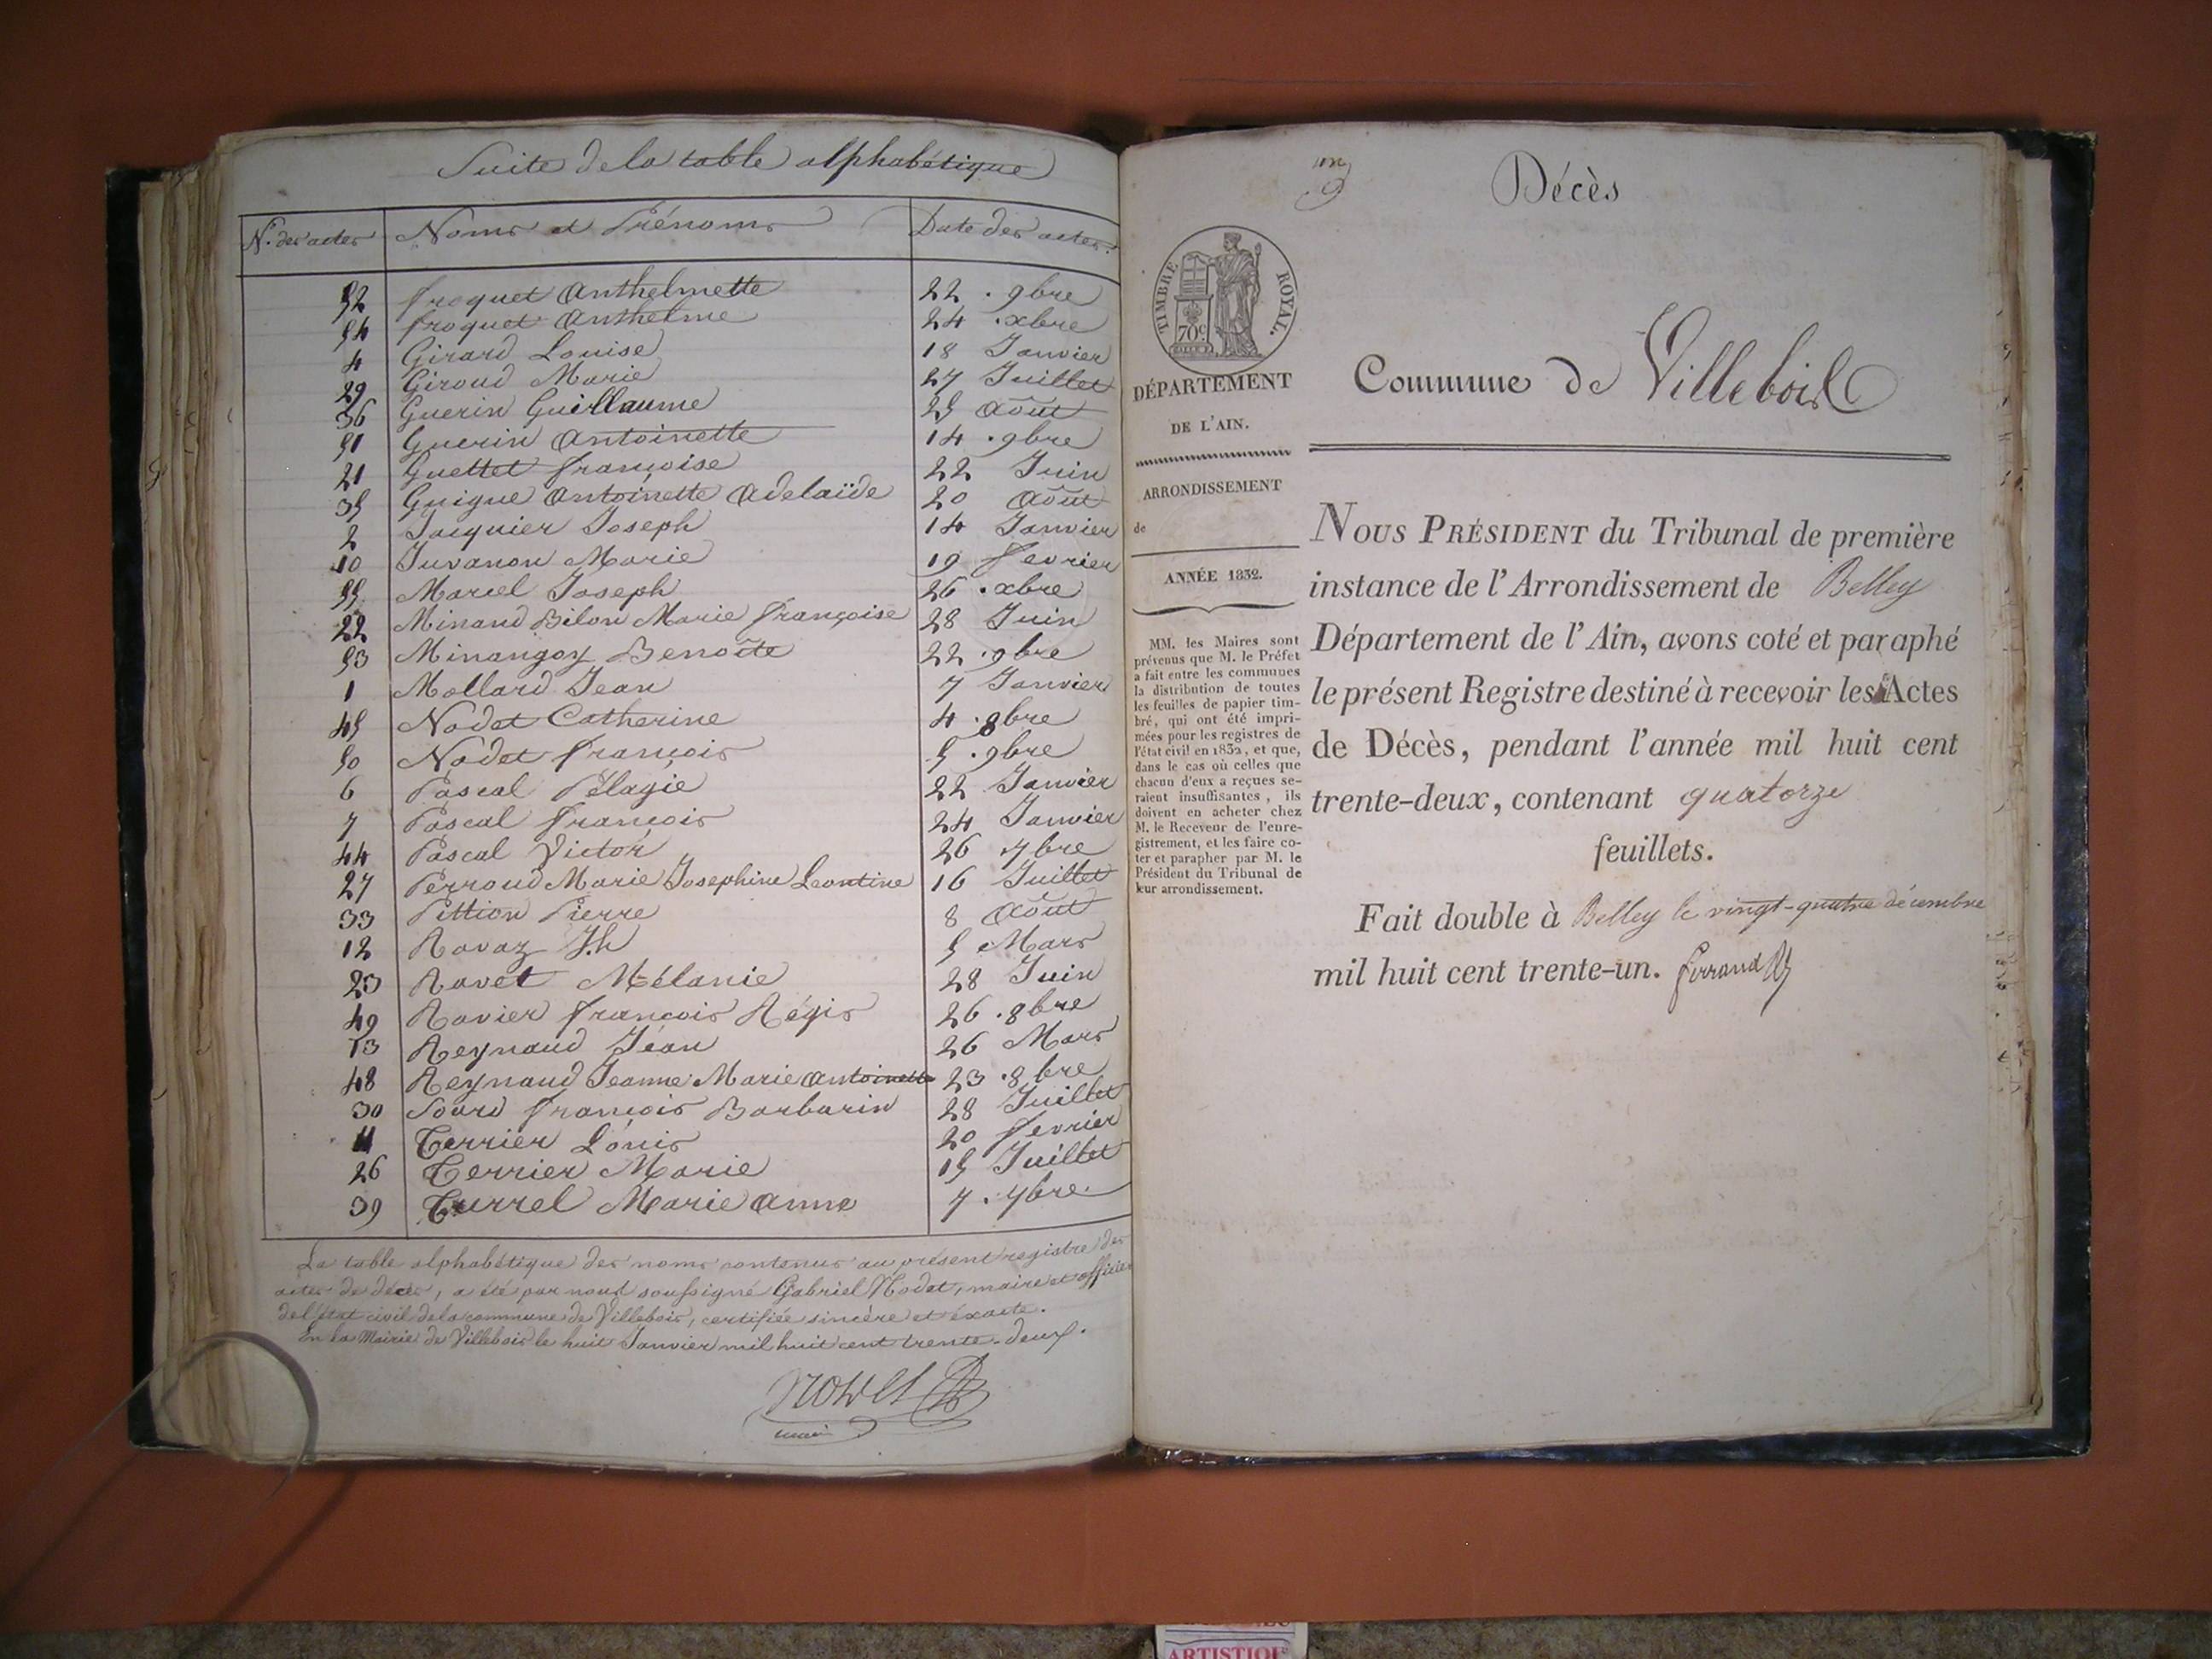 Suite de la table alphabétique
N.º des actes Noms et Prénoms Date des actes.
52 froquet Anthelmette 22 . 9bre
54 froquet Anthelme 24 . xbre
4 Girard Louise 18 Janvier
29 Giroud Marie 27 Juillet
36 Guerin Guillaume 25 Août
51 Guerin Antoinette 14 . 9bre
21 Guettet françoise 22 Juin
35 Guigue Antoinette Adelaïde 20 Août
2 Jacquier Joseph 14 Janvier
10 Juvanon Marie 19 fevrier
55 Marcel Joseph 26 . xbre
22 Minand Bilon Marie françoise 28 Juin
53 Minangoy Benoîte 22 . 9bre
1 Mollard Jean 7 Janvier
45 Nodet Catherine 4 . 8bre
50 Nodet françois 5 . 9bre
6 Pascal Pélagie 22 Janvier
7 Pascal françois 24 Janvier
44 Pascal Victor 26 7bre
27 Perroud Marie Josephine Leontine 16 Juillet
33 Pittion Pierre 8 Août
12 Ravaz Jh 5 Mars
23 Ravet Mélanie 28 Juin
49 Ravier françois Régis 26 . 8bre
13 Reynaud Jean 26 Mars
48 Reynaud Jeanne Marie Antoinette 23 . 8bre
30 Sourd françois Barbarin 28 Juillet
11 Terrier Louis 20 fevrier
26 Terrier Marie 15 Juillet
39 Turrel Marie Anne 7 . 7bre.
La table alphabétique des noms contenus au présent registre des
actes de décès, a été par nous soussigné Gabriel Nodet, maire et officier
de l'état civil de la commune de Villebois, certifiée sincère et exacte.
En la Mairie de Villebois le huit Janvier mil huit cent trente-deux.
Nodet
maire
Décès
TIMBRE ROYAL.
70c.
DÉPARTEMENT
DE L'AIN.
ARRONDISSEMENT
de
ANNÉE 1832.
MM. les Maires sont
prévenus que M. le Préfet
a fait entre les communes
la distribution de toutes
les feuilles de papier tim-
bré, qui ont été impri-
mées pour les registres de
l'état civil en 1832, et que,
dans le cas où celles que
chacun d'eux a reçues se-
raient insuffisantes, ils
doivent en acheter chez
M. le Receveur de l'enre-
gistrement, et les faire co-
ter et parapher par M. le
Président du Tribunal de
leur arrondissement.
Commune de Villebois
NOUS PRÉSIDENT du Tribunal de première
instance de l'Arrondissement de Belley
Département de l'Ain, avons coté et paraphé
le présent Registre destiné à recevoir les Actes
de Décès, pendant l'année mil huit cent
trente-deux, contenant quatorze
feuillets.
Fait double à Belley le vingt-quatre décembre
mil huit cent trente-un.
ARTISTIQ